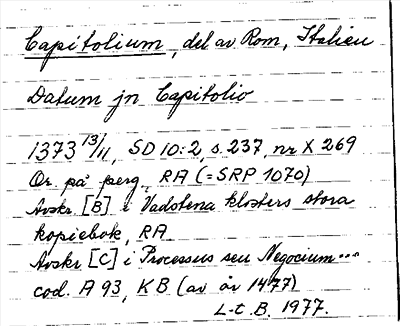 Capitolium, del av Rom, Italien
Datum jn Capitolio
1373 13/11, SD 10:2, s. 237, nr X 269
Or. på perg., RA (= SRP 1070)
Avskr. [B] i Vadstena klosters stora
kopiebok, RA
Avskr [C] i Processus seu Negocium...
cod. A 93, KB (av år 1477)
L-t. B. 1977.